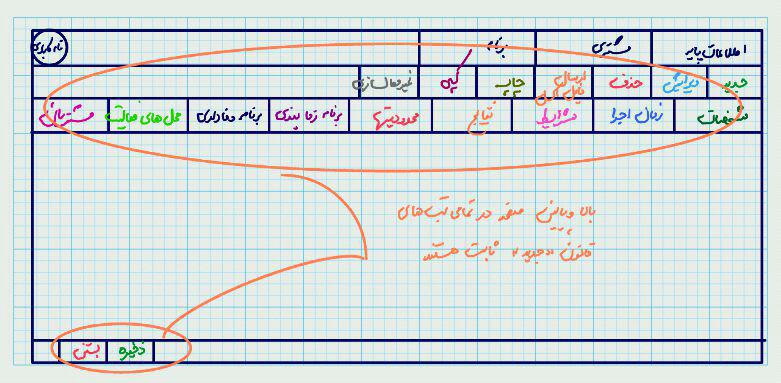 اطلاعات پایه مشتری برنامه
جدید ویرایش حذف ارسال فایل چاپ کپی غیرفعالسازی
مشخصات زمان اجرا شرایط نتایج محدودیتها برنامه زمانبندی برنامه وفاداری محل های فعالیت مشتریان
بالا و پایین صفحه در تمامی تب های
قانون "جدید" ثابت هستند
ذخیره بستن